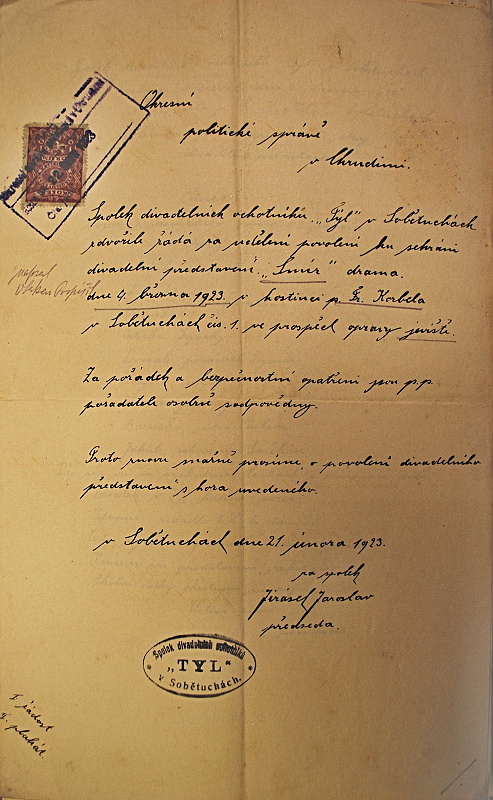 Okresní
politické správě
v Chrudimi.
Spolek divadelních ochotníků „Tyl" v Sobětuchách
zdvořile žádá za udělení povolení ku sehrání
divadelní představení „Smír" drama.
dne 4. března 1923. v hostinci p. Fr. Korbela
v Sobětuchách čís. 1. ve prospěch opravy jeviště.
napsal
Za pořádek a bezpečnostní opatření jsou p.p.
pořadatelé osobně zodpovědny.
Proto znovu snažně prosíme, o povolení divadelního
představení shora uvedeného.
v Sobětuchách dne 21. února 1923.
za spolek
Jirásek Jaroslav
předseda.
Spolek divadelních ochotníků
„TYL"
v Sobětuchách.
I žádost